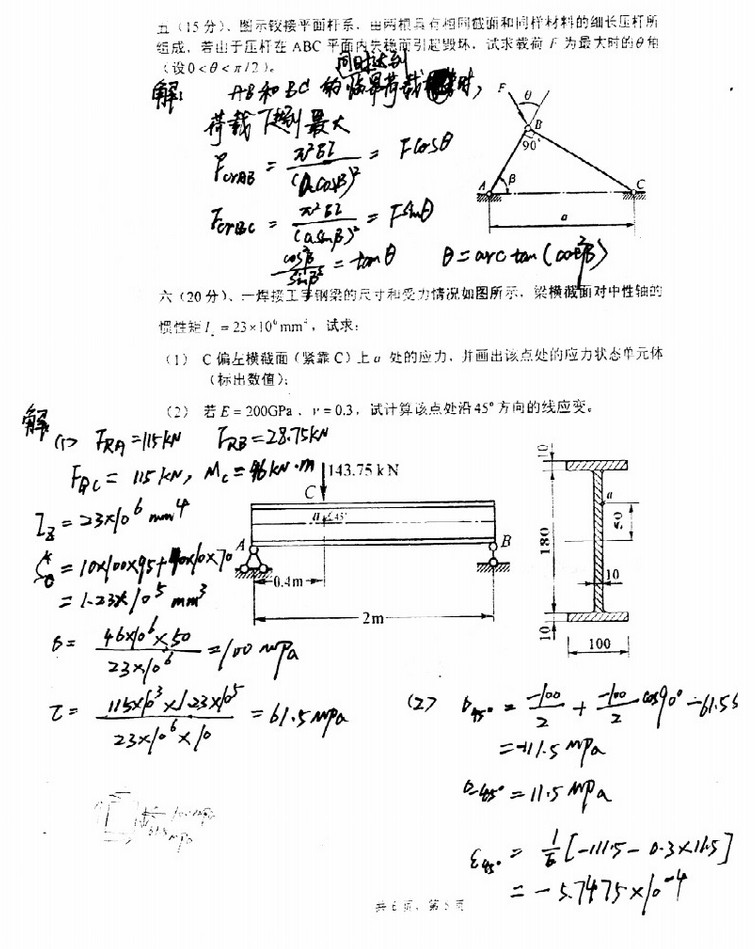 五（15分）、图示铰接平面杆系，由两根具有相同截面和同样材料的细长压杆所
组成，若由于压杆在 ABC 平面内失稳而引起毁坏，试求载荷 F 为最大时的θ角
（设0<θ<π/2）。
同时达到
解： AB和BC 的临界荷载时，
荷载F达到最大
FcrAB = π²EI/(acosβ)² = Fcosθ
FcrBC = π²EI/(asinβ)² = Fsinθ
cos²β/sinβ² = tanθ θ=arctan(cot²β)
F
θ
B
90°
A
β
C
a
六（20分）、一焊接工字钢梁的尺寸和受力情况如图所示，梁横截面对中性轴的
惯性矩I_z = 23×10⁶mm⁴，试求：
（1） C 偏左横截面（紧靠 C）上 a 处的应力，并画出该点处的应力状态单元体
（标出数值）；
（2） 若 E = 200GPa，ν = 0.3，试计算该点处沿45°方向的线应变。
解
(1) FRA=115kN FRB=28.75kN
FQC = 115kN, Mc = 46kN·m
Iz = 23×10⁶ mm⁴
= 10×100×95+40×10×70
= 1.23×10⁵ mm³
σ = 46×10⁶×50/23×10⁶ = 100 MPa
τ = 115×10³×1.23×10⁵/23×10⁶×10 = 61.5MPa
143.75 kN
C
a 45°
A
B
0.4m
2m
10
180
10
a
50
10
100
(2) σ45° = -100/2 + -100/2 cos90° -61.5
= -111.5 MPa
σ-45° = 11.5 MPa
ε45° = 1/E [-111.5 - 0.3×11.5]
= -5.7475×10⁻⁴